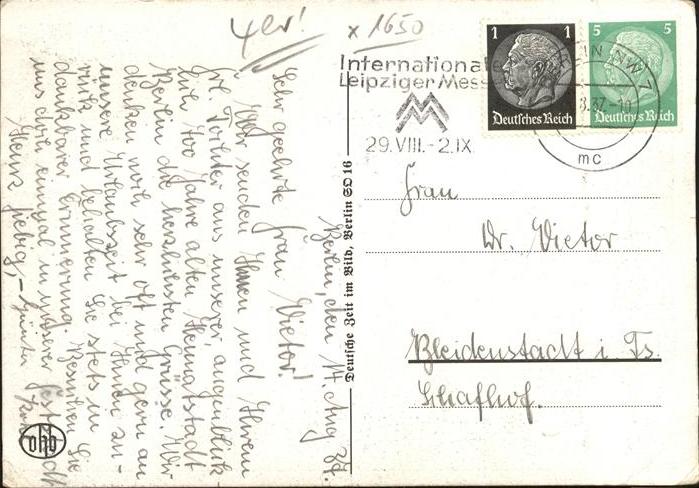 4er!
x 1650
Internationale
Leipziger Messe
29. VIII. - 2. IX.
1 1
Deutsches Reich
5 5
Deutsches Reich
NW 7
8.37.-1
mc
Frau
Dr. Vietor
Bleidenstadt i. Ts.
Schafhof.
Deutsche Zeit im Bild, Berlin SO 16
Berlin, den 14. Aug 37.
Sehr geehrte Frau Vietor!
Wir senden Ihnen und Ihrem
Frl. Tochter aus unserer, augenblick-
lich 700 Jahre alten Heimatstadt
Berlin die herzlichsten Grüsse. Wir
denken noch sehr oft und gern an
unsere Urlaubszeit bei Ihnen zu-
rück und behalten Sie stets in
dankbarer Erinnerung. Besuchen Sie
uns doch einmal in unserer
Heinz Fiebig, - Günter
ohb